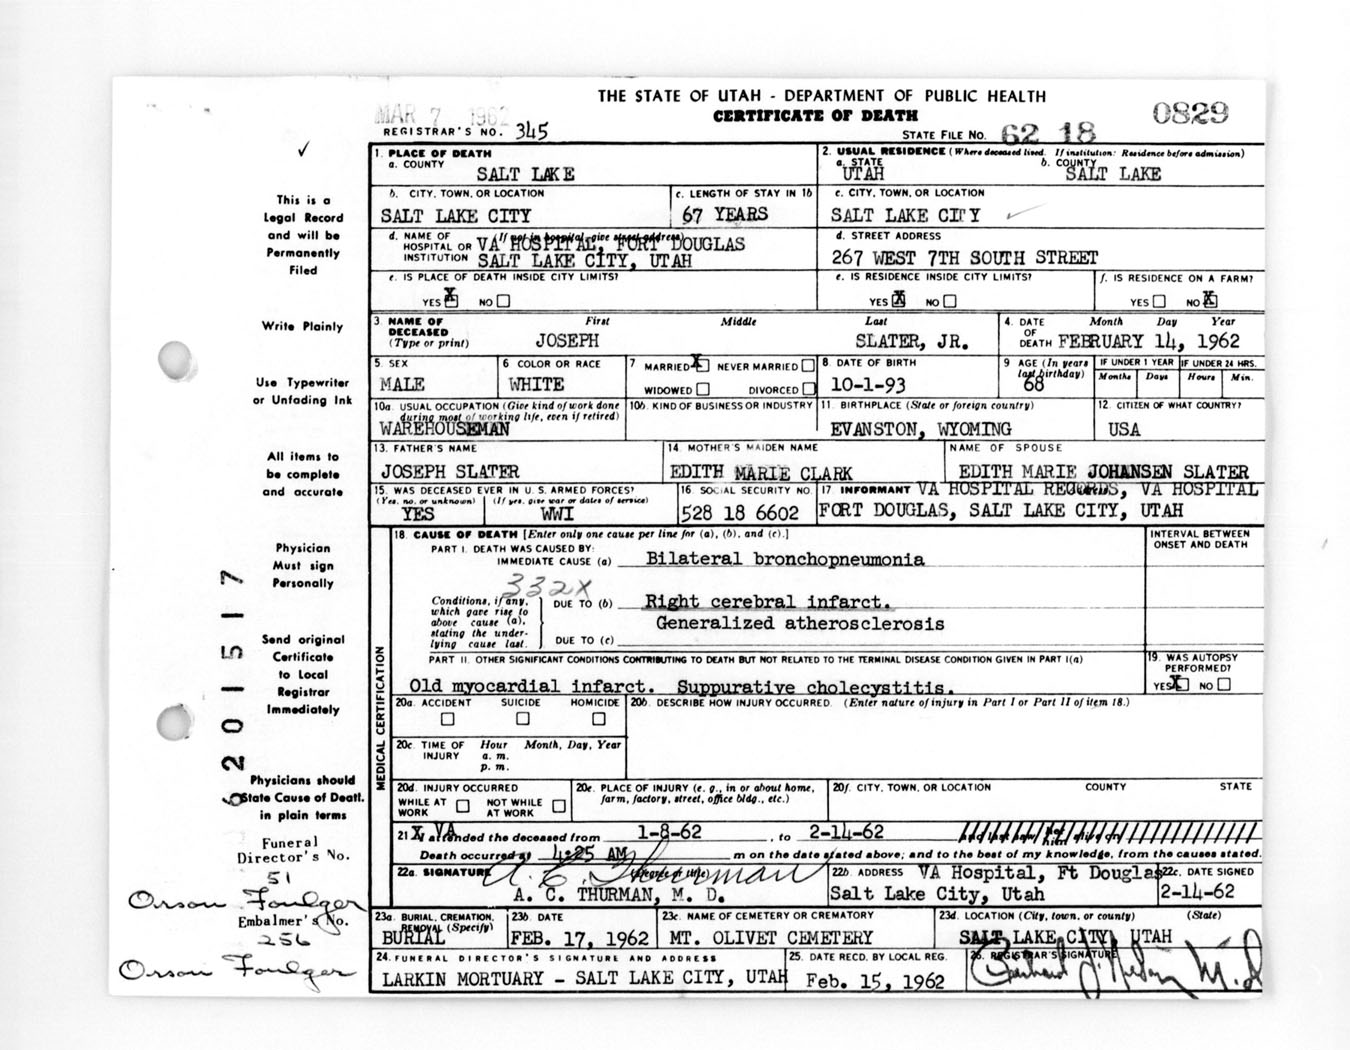 THE STATE OF UTAH - DEPARTMENT OF PUBLIC HEALTH
CERTIFICATE OF DEATH
0829
MAR 7 1962
REGISTRAR'S NO. 345
STATE FILE NO. 62 18
✓
This is a
Legal Record
and will be
Permanently
Filed
Write Plainly
Use Typewriter
or Unfading Ink
All items to
be complete
and accurate
Physician
Must sign
Personally
Send original
Certificate
to Local
Registrar
Immediately
Physicians should
State Cause of Death
in plain terms
Funeral
Director's No.
51
Orson Foulger
Embalmer's No.
256
Orson Foulger
1. PLACE OF DEATH
a. COUNTY
SALT LAKE
2. USUAL RESIDENCE (Where deceased lived. If institution: Residence before admission)
a. STATE
UTAH
b. COUNTY
SALT LAKE
b. CITY, TOWN, OR LOCATION
SALT LAKE CITY
c. LENGTH OF STAY IN 1b
67 YEARS
c. CITY, TOWN, OR LOCATION
SALT LAKE CITY ✓
d. NAME OF HOSPITAL OR INSTITUTION (If not in hospital, give street address)
VA HOSPITAL, FORT DOUGLAS
SALT LAKE CITY, UTAH
d. STREET ADDRESS
267 WEST 7TH SOUTH STREET
e. IS PLACE OF DEATH INSIDE CITY LIMITS?
YES X NO
e. IS RESIDENCE INSIDE CITY LIMITS?
YES X NO
f. IS RESIDENCE ON A FARM?
YES NO X
3. NAME OF DECEASED (Type or print)
First Middle Last
JOSEPH SLATER, JR.
4. DATE OF DEATH
Month Day Year
FEBRUARY 14, 1962
5. SEX
MALE
6 COLOR OR RACE
WHITE
7 MARRIED X NEVER MARRIED
WIDOWED DIVORCED
8. DATE OF BIRTH
10-1-93
9 AGE (In years last birthday)
68
IF UNDER 1 YEAR
Months Days
IF UNDER 24 HRS.
Hours Min.
10a. USUAL OCCUPATION (Give kind of work done
during most of working life, even if retired)
WAREHOUSEMAN
10b. KIND OF BUSINESS OR INDUSTRY
11. BIRTHPLACE (State or foreign country)
EVANSTON, WYOMING
12. CITIZEN OF WHAT COUNTRY?
USA
13. FATHER'S NAME
JOSEPH SLATER
14. MOTHER'S MAIDEN NAME
EDITH MARIE CLARK
NAME OF SPOUSE
EDITH MARIE JOHANSEN SLATER
15. WAS DECEASED EVER IN U. S. ARMED FORCES?
(Yes, no, or unknown) (If yes, give war or dates of service)
YES WWI
16. SOCIAL SECURITY NO.
528 18 6602
17. INFORMANT VA HOSPITAL RECORDS, VA HOSPITAL
FORT DOUGLAS, SALT LAKE CITY, UTAH
MEDICAL CERTIFICATION
18. CAUSE OF DEATH [Enter only one cause per line for (a), (b), and (c).]
INTERVAL BETWEEN
ONSET AND DEATH
PART I. DEATH WAS CAUSED BY:
IMMEDIATE CAUSE (a) Bilateral bronchopneumonia
332X
Conditions, if any,
which gave rise to
above cause (a),
stating the under-
lying cause last.
DUE TO (b) Right cerebral infarct.
Generalized atherosclerosis
DUE TO (c)
PART II. OTHER SIGNIFICANT CONDITIONS CONTRIBUTING TO DEATH BUT NOT RELATED TO THE TERMINAL DISEASE CONDITION GIVEN IN PART I(a)
Old myocardial infarct. Suppurative cholecystitis.
19. WAS AUTOPSY
PERFORMED?
YES X NO
20a. ACCIDENT SUICIDE HOMICIDE
20b. DESCRIBE HOW INJURY OCCURRED. (Enter nature of injury in Part I or Part II of item 18.)
20c. TIME OF INJURY
Hour Month, Day, Year
a. m.
p. m.
20d. INJURY OCCURRED
WHILE AT WORK NOT WHILE AT WORK
20e. PLACE OF INJURY (e. g., in or about home,
farm, factory, street, office bldg., etc.)
20f. CITY, TOWN, OR LOCATION COUNTY STATE
21 X VA attended the deceased from 1-8-62, to 2-14-62 and last saw him alive on
Death occurred at 4:25 AM m on the date stated above; and to the best of my knowledge, from the causes stated.
22a. SIGNATURE (Degree or title)
A. C. Thurman
A. C. THURMAN, M. D.
22b. ADDRESS VA Hospital, Ft Douglas
Salt Lake City, Utah
22c. DATE SIGNED
2-14-62
23a. BURIAL, CREMATION,
REMOVAL (Specify)
BURIAL
23b. DATE
FEB. 17, 1962
23c. NAME OF CEMETERY OR CREMATORY
MT. OLIVET CEMETERY
23d. LOCATION (City, town, or county) (State)
SALT LAKE CITY, UTAH
24. FUNERAL DIRECTOR'S SIGNATURE AND ADDRESS
LARKIN MORTUARY - SALT LAKE CITY, UTAH
25. DATE RECD. BY LOCAL REG.
Feb. 15, 1962
26. REGISTRAR'S SIGNATURE
M.D